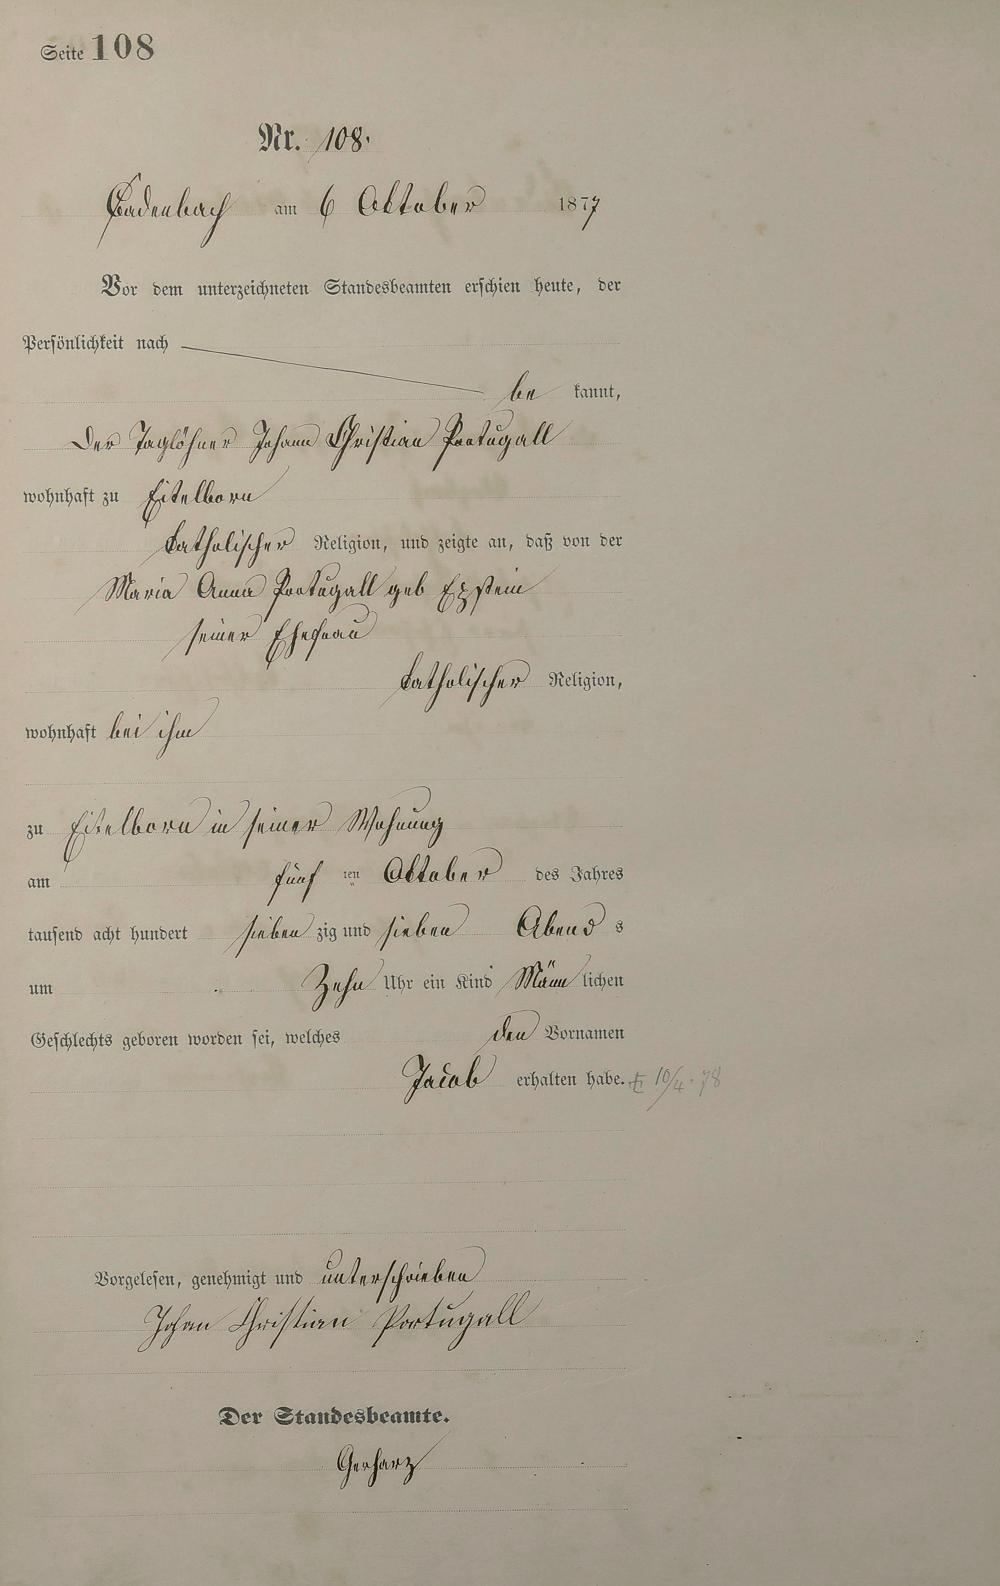 Seite 108
Nr. 108.
Cadenbach am 6 Oktober 1877
Vor dem unterzeichneten Standesbeamten erschien heute, der
Persönlichkeit nach
be kannt,
der Taglöhner Johann Christian Portugall
wohnhaft zu Eitelborn
katholischer Religion, und zeigte an, daß von der
Maria Anna Portugall geb Epstein
seiner Ehefrau
katholischer Religion,
wohnhaft bei ihm
zu Eitelborn in seiner Wohnung
am fünf ten Oktober des Jahres
tausend acht hundert sieben zig und sieben Abend s
um Zehn Uhr ein Kind Männ lichen
Geschlechts geboren worden sei, welches den Vornamen
Jacob erhalten habe. 10/4. 78
Vorgelesen, genehmigt und unterschrieben
Johan Christian Portugall
Der Standesbeamte.
Gerharz